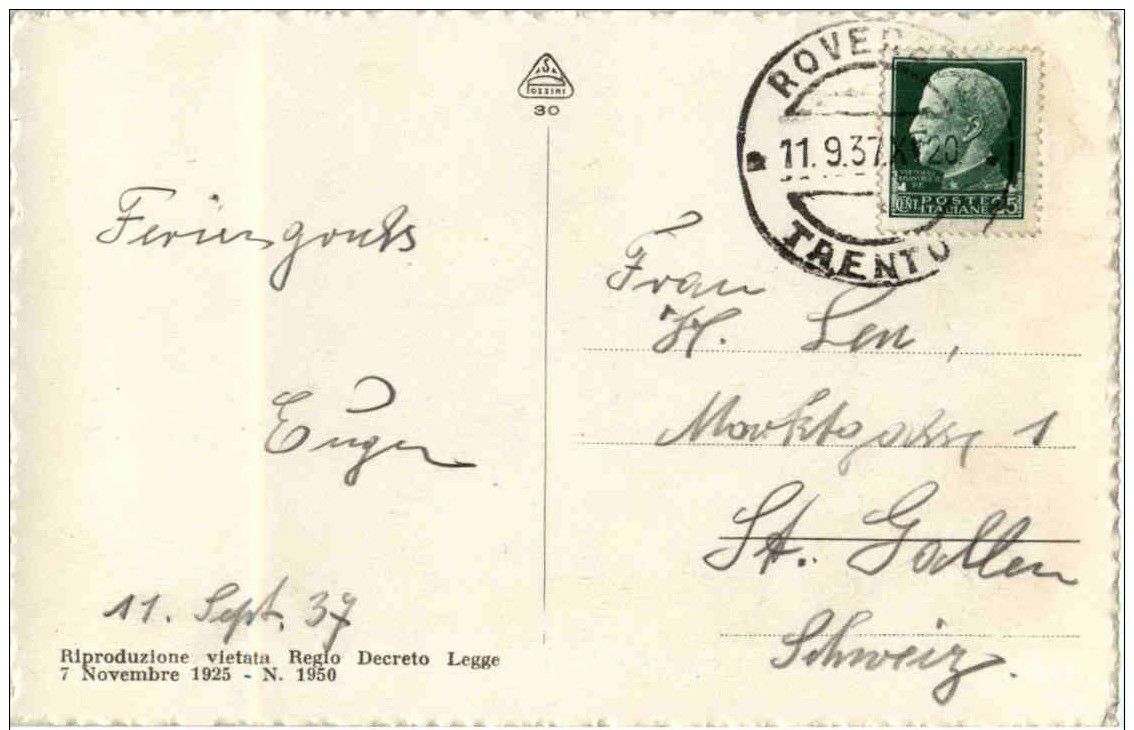 S
POZZINI
30
ROVER
11.9.37.XV 20
TRENTO
CENT POSTE 25
ITALIANE
Feriengruss
Eugen
11. Sept. 37
Riproduzione vietata Regio Decreto Legge
7 Novembre 1925 - N. 1950
Frau
H. Leu,
Marktgasse 1
St. Gallen
Schweiz.